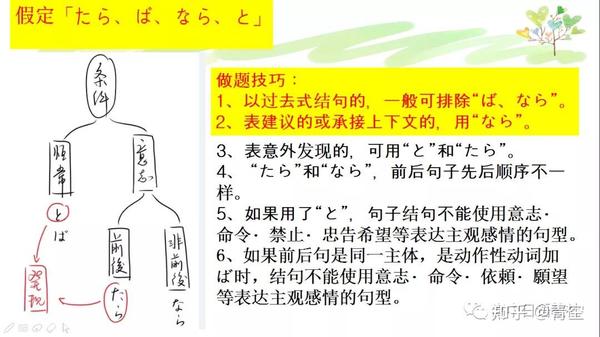 假定「たら、ば、なら、と」
条件
恒常
意志
と
ば
前後
非前後
発現
たら
なら
做题技巧：
1、以过去式结句的，一般可排除“ば、なら”。
2、表建议的或承接上下文的，用“なら”。
3、表意外发现的，可用“と”和“たら”。
4、“たら”和“なら”，前后句子先后顺序不一
样。
5、如果用了“と”，句子结句不能使用意志·
命令·禁止·忠告希望等表达主观感情的句型。
6、如果前后句是同一主体，是动作性动词加
ば时，结句不能使用意志·命令·依赖·願望
等表达主观感情的句型。
知乎